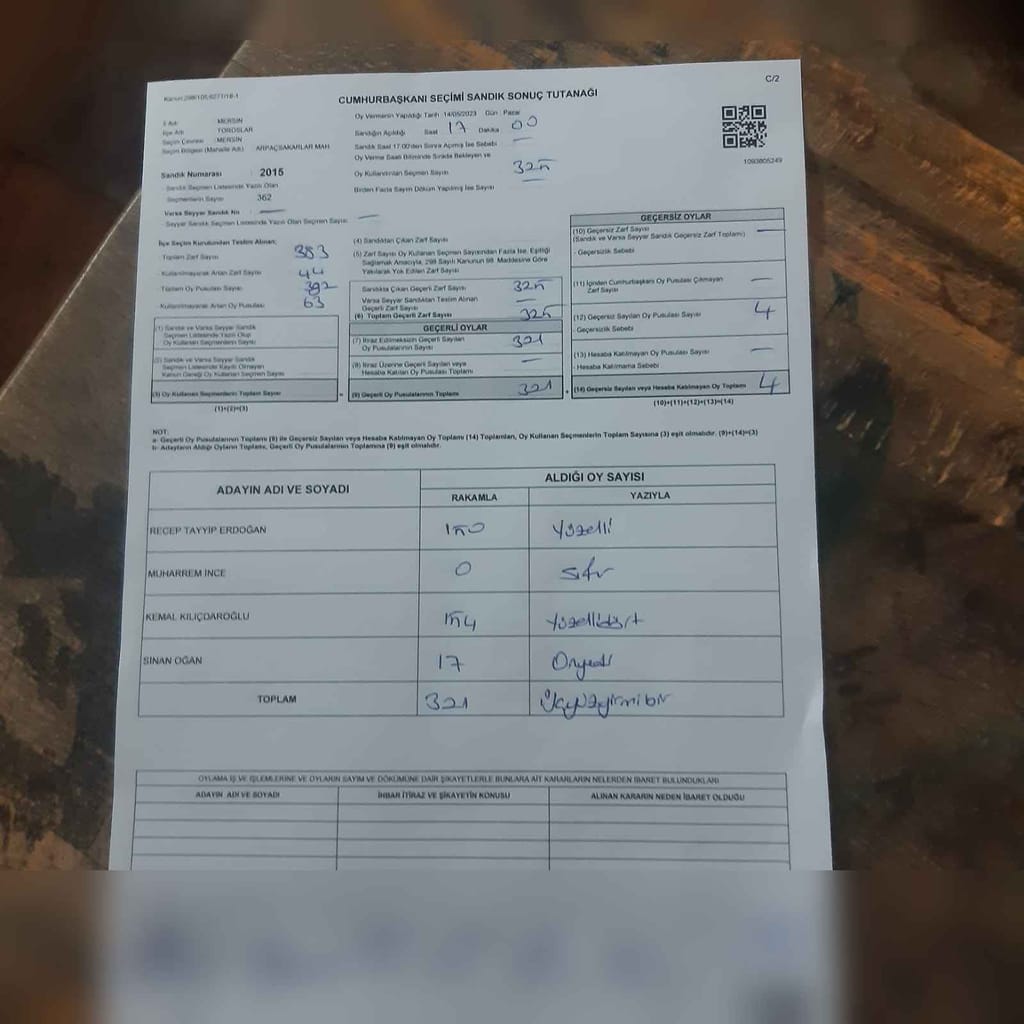 C/2
Kanun:298/105/6271/18-1
CUMHURBAŞKANI SEÇİMİ SANDIK SONUÇ TUTANAĞI
İl Adı : MERSİN
İlçe Adı : TOROSLAR
Seçim Çevresi : MERSİN
Seçim Bölgesi (Mahalle Adı) : ARPAÇSAKARLAR MAH
Sandık Numarası : 2015
Sandık Seçmen Listesinde Yazılı Olan
Seçmenlerin Sayısı : 362
Varsa Seyyar Sandık No : —
Seyyar Sandık Seçmen Listesinde Yazılı Olan Seçmen Sayısı: —
Oy Vermenin Yapıldığı Tarih :14/05/2023 Gün : Pazar
Sandığın Açıldığı Saat 17 Dakika 00
Sandık Saat 17.00'den Sonra Açılmış İse Sebebi : —
Oy Verme Saati Bitiminde Sırada Bekleyen ve
Oy Kullandırılan Seçmen Sayısı 325
Birden Fazla Sayım Döküm Yapılmış İse Sayısı —
1093805249
İlçe Seçim Kurulundan Teslim Alınan;
Toplam Zarf Sayısı 383
Kullanılmayarak Artan Zarf Sayısı 44
Toplam Oy Pusulası Sayısı 392
Kullanılmayarak Artan Oy Pusulası 63
(1) Sandık ve Varsa Seyyar Sandık
Seçmen Listesinde Yazılı Olup
Oy Kullanan Seçmenlerin Sayısı
(2) Sandık ve Varsa Seyyar Sandık
Seçmen Listesinde Kayıtlı Olmayan
Kanun Gereği Oy Kullanan Seçmen Sayısı
(3) Oy Kullanan Seçmenlerin Toplam Sayısı
(1)+(2)=(3)
(4) Sandıktan Çıkan Zarf Sayısı
(5) Zarf Sayısı Oy Kullanan Seçmen Sayısından Fazla İse, Eşitliği
Sağlamak Amacıyla, 298 Sayılı Kanunun 98. Maddesine Göre
Yakılarak Yok Edilen Zarf Sayısı
Sandıkta Çıkan Geçerli Zarf Sayısı 325
Varsa Seyyar Sandıktan Teslim Alınan
Geçerli Zarf Sayısı —
(6) Toplam Geçerli Zarf Sayısı 325
GEÇERLİ OYLAR
(7) İtiraz Edilmeksizin Geçerli Sayılan
Oy Pusulalarının Sayısı 321
(8) İtiraz Üzerine Geçerli Sayılan veya
Hesaba Katılan Oy Pusulası Toplamı —
(9) Geçerli Oy Pusulalarının Toplamı 321
GEÇERSİZ OYLAR
(10) Geçersiz Zarf Sayısı —
(Sandık ve Varsa Seyyar Sandık Geçersiz Zarf Toplamı)
- Geçersizlik Sebebi
(11) İçinden Cumhurbaşkanı Oy Pusulası Çıkmayan —
Zarf Sayısı
(12) Geçersiz Sayılan Oy Pusulası Sayısı 4
- Geçersizlik Sebebi
(13) Hesaba Katılmayan Oy Pusulası Sayısı —
- Hesaba Katılmama Sebebi
(14) Geçersiz Sayılan veya Hesaba Katılmayan Oy Toplamı 4
(10)+(11)+(12)+(13)=(14)
NOT:
a- Geçerli Oy Pusulalarının Toplamı (9) ile Geçersiz Sayılan veya Hesaba Katılmayan Oy Toplamı (14) Toplamları, Oy Kullanan Seçmenlerin Toplam Sayısına (3) eşit olmalıdır. (9)+(14)=(3)
b- Adayların Aldığı Oyların Toplamı, Geçerli Oy Pusulalarının Toplamına (9) eşit olmalıdır.
ADAYIN ADI VE SOYADI ALDIĞI OY SAYISI
RAKAMLA YAZIYLA
RECEP TAYYİP ERDOĞAN 150 Yüzelli
MUHARREM İNCE 0 sıfır
KEMAL KILIÇDAROĞLU 154 Yüzellidört
SİNAN OĞAN 17 Onyedi
TOPLAM 321 Üçyüzyirmibir
OYLAMA İŞ VE İŞLEMLERİNE VE OYLARIN SAYIM VE DÖKÜMÜNE DAİR ŞİKAYETLERLE BUNLARA AİT KARARLARIN NELERDEN İBARET BULUNDUKLARI
ADAYIN ADI VE SOYADI İHBAR İTİRAZ VE ŞİKAYETİN KONUSU ALINAN KARARIN NEDEN İBARET OLDUĞU